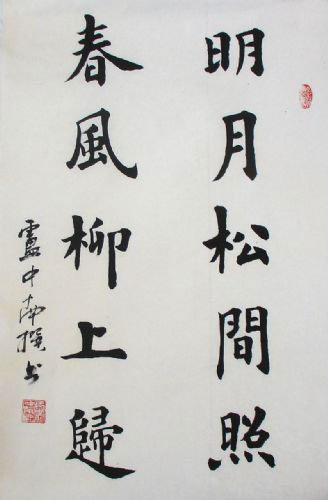 明月松間照
春風柳上歸
盧中南撰書